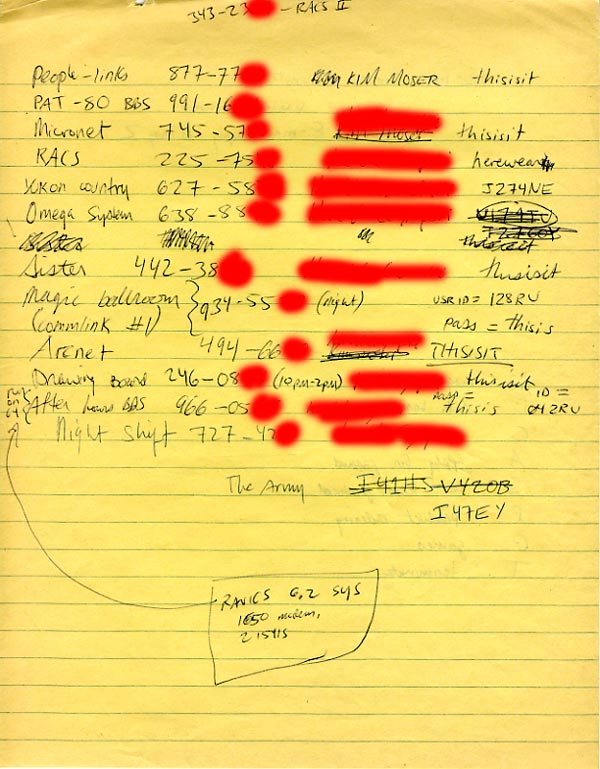 343-23 - RACS II
People-links 877-77 KIM MOSER thisisit
PAT-80 BBS 991-16
Micronet 745-57 Kim Moser thisisit
RACS 225-75 herewear
Yukon country 627-58 J274NE
Omega System 638-88
thisisit
Sister 442-38 thisisit
Magic ballroom 934-55 (night) USR ID = 128RU
(commlink #1) pass = thisis
Arenet 494-66 THISISIT
Drawing Board 246-08 (10pm-2pm) thisisit
After hours BBS 966-05 pass = thisis ID = 042RU
Night Shift 727-42
The Army I41HS V4Z0B
I47EY
RAVICS 6.2 SYS
1650 modem,